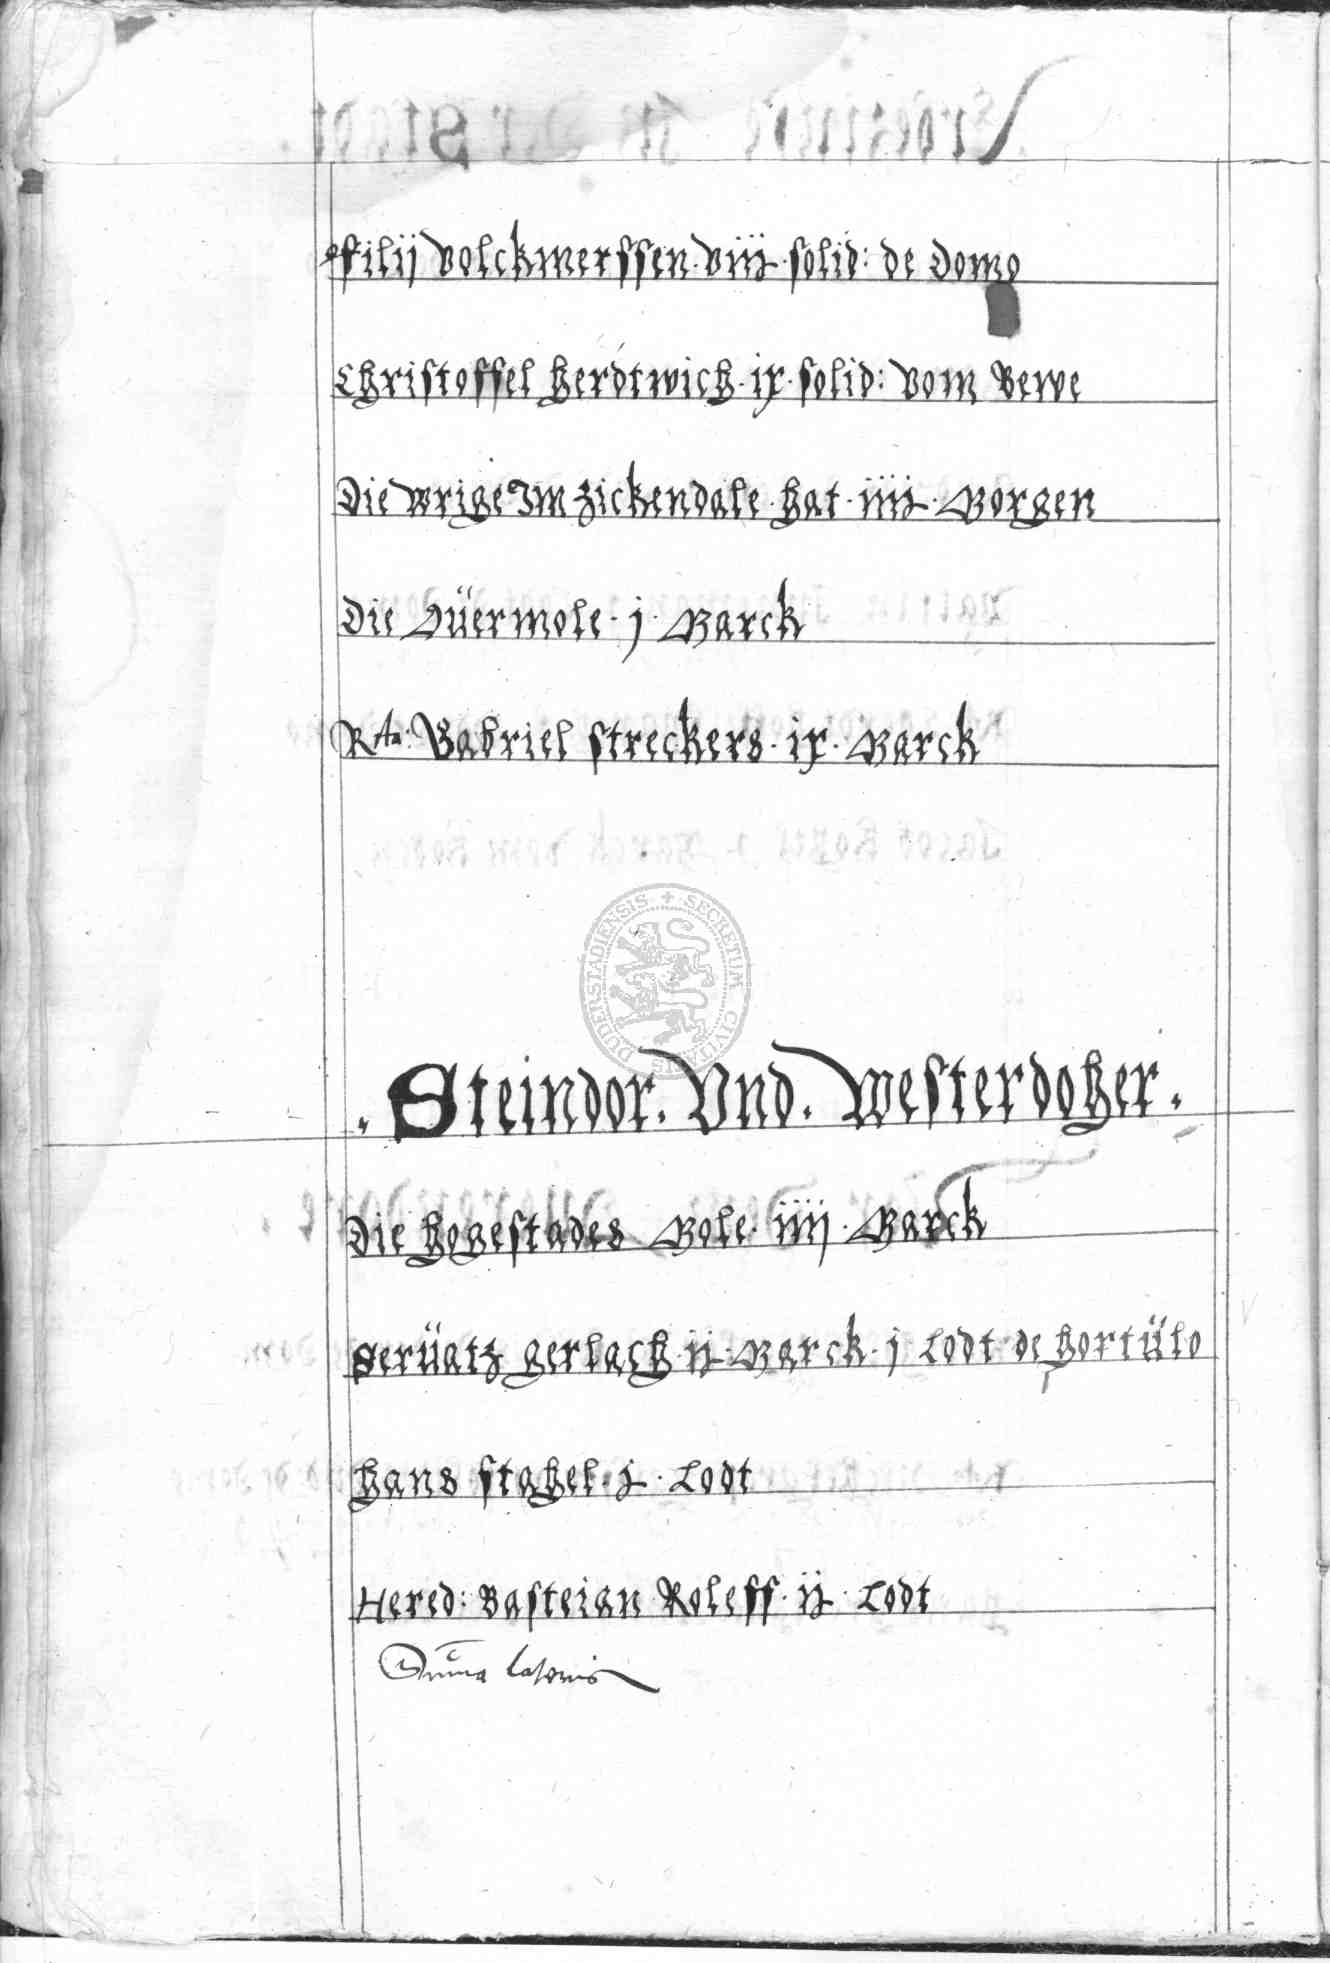 filij Volckmerssen · viij · solid: de Domo
Christoffel Herdtwich · ix · solid: vom Rewe
Die wrige Im Zickendale · hat · iiij · Morgen
Die Düermole · j · Marck
Rta: Gabriel Streckers · ix · Marck
DUDERSTADIENSIS + SECRETUM CIVITATIS
. Steindor . Vnd . Westerdoher .
Die Hogestades Mole · iiij · Marck
Serüatz gerlach · ij · Marck · j · Lodt de hortülo
Hans Stahel · j · Lodt
Hered: Basteian Roleff · ij · Lodt
Suma lateris